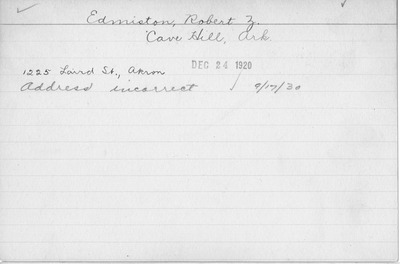 Edmiston, Robert Z.
Cave Hill, Ark.
DEC 24 1920
1225 Laird St., Akron
Address incorrect / 9/17/30